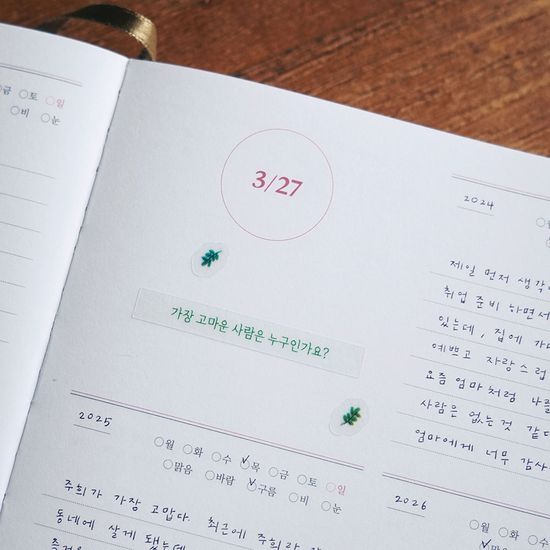 금 ○토 ○일
○비 ○눈
3/27
가장 고마운 사람은 누구인가요?
2025
○월 ○화 ○수 ✓목 ○금 ○토 ○일
○맑음 ○바람 ✓구름 ○비 ○눈
주희가 가장 고맙다. 최근에 주희랑
동네에 살게 됐는데
2024
제일 먼저 생각
취업 준비 하면서
있는데, 집에 가
예쁘고 자랑스럽
요즘 엄마처럼 나를
사람은 없는 것 같다
엄마에게 너무 감사
2026
○월 ○화 ○수